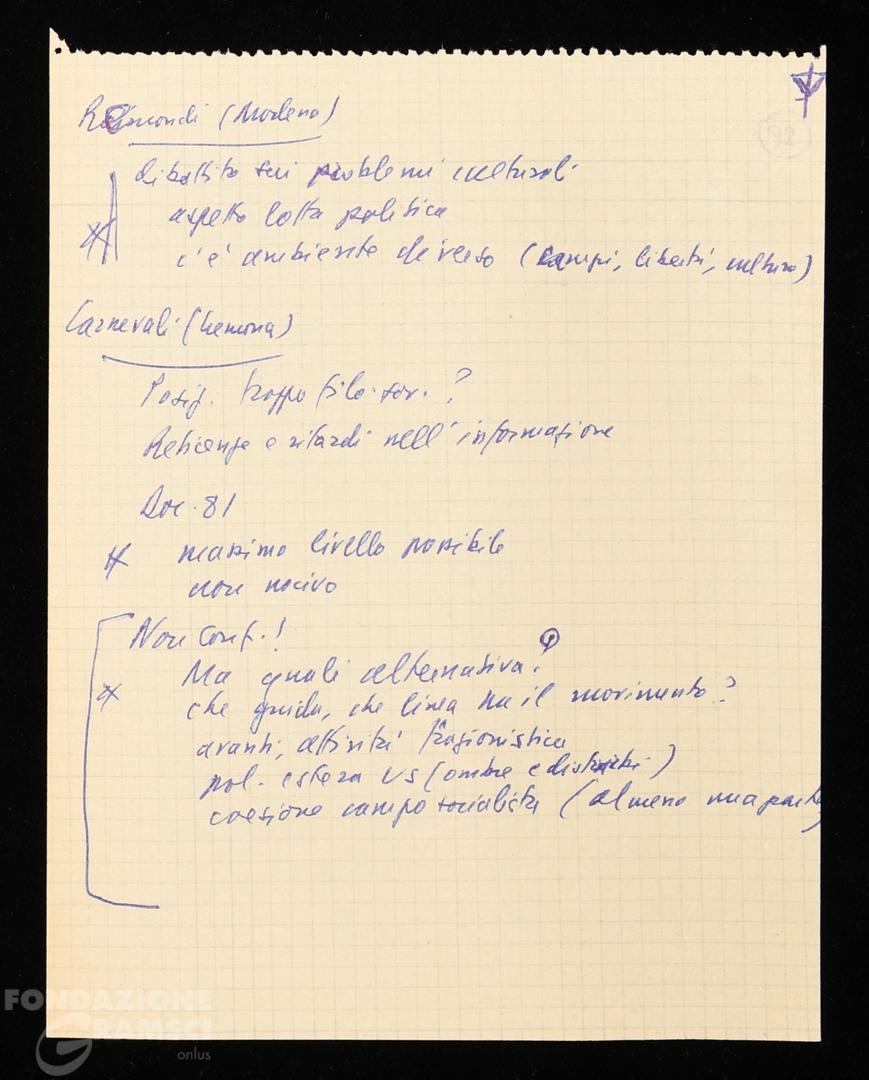 Reimondi (Modena)
dibattito sui problemi culturali
aspetto lotta politica
c'è ambiente diverso (campi, libertà, cultura)
Carnevali (Cremona)
Posiz. troppo filo-sov.?
Reticenze e ritardi nell'informazione
Doc. 81
massimo livello possibile
non nocivo
Non conf.!
Ma quali alternativa?
che guida, che linea ha il movimento?
avanti, attività frazionistica
pol. estera US (ombre e)
coesione campo socialista (almeno una parte)
FONDAZIONE
GRAMSCI
onlus